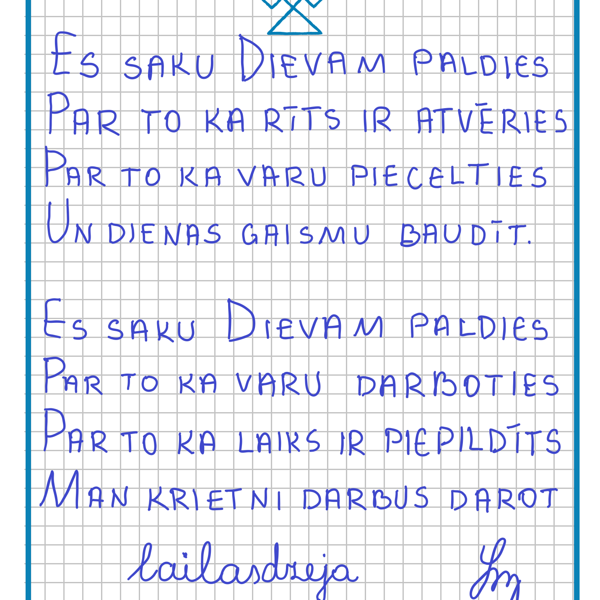 Es saku Dievam paldies
Par to ka rīts ir atvēries
Par to ka varu piecelties
Un dienas gaismu baudīt.
Es saku Dievam paldies
Par to ka varu darboties
Par to ka laiks ir piepildīts
Man krietni darbus darot
lailasdzeja